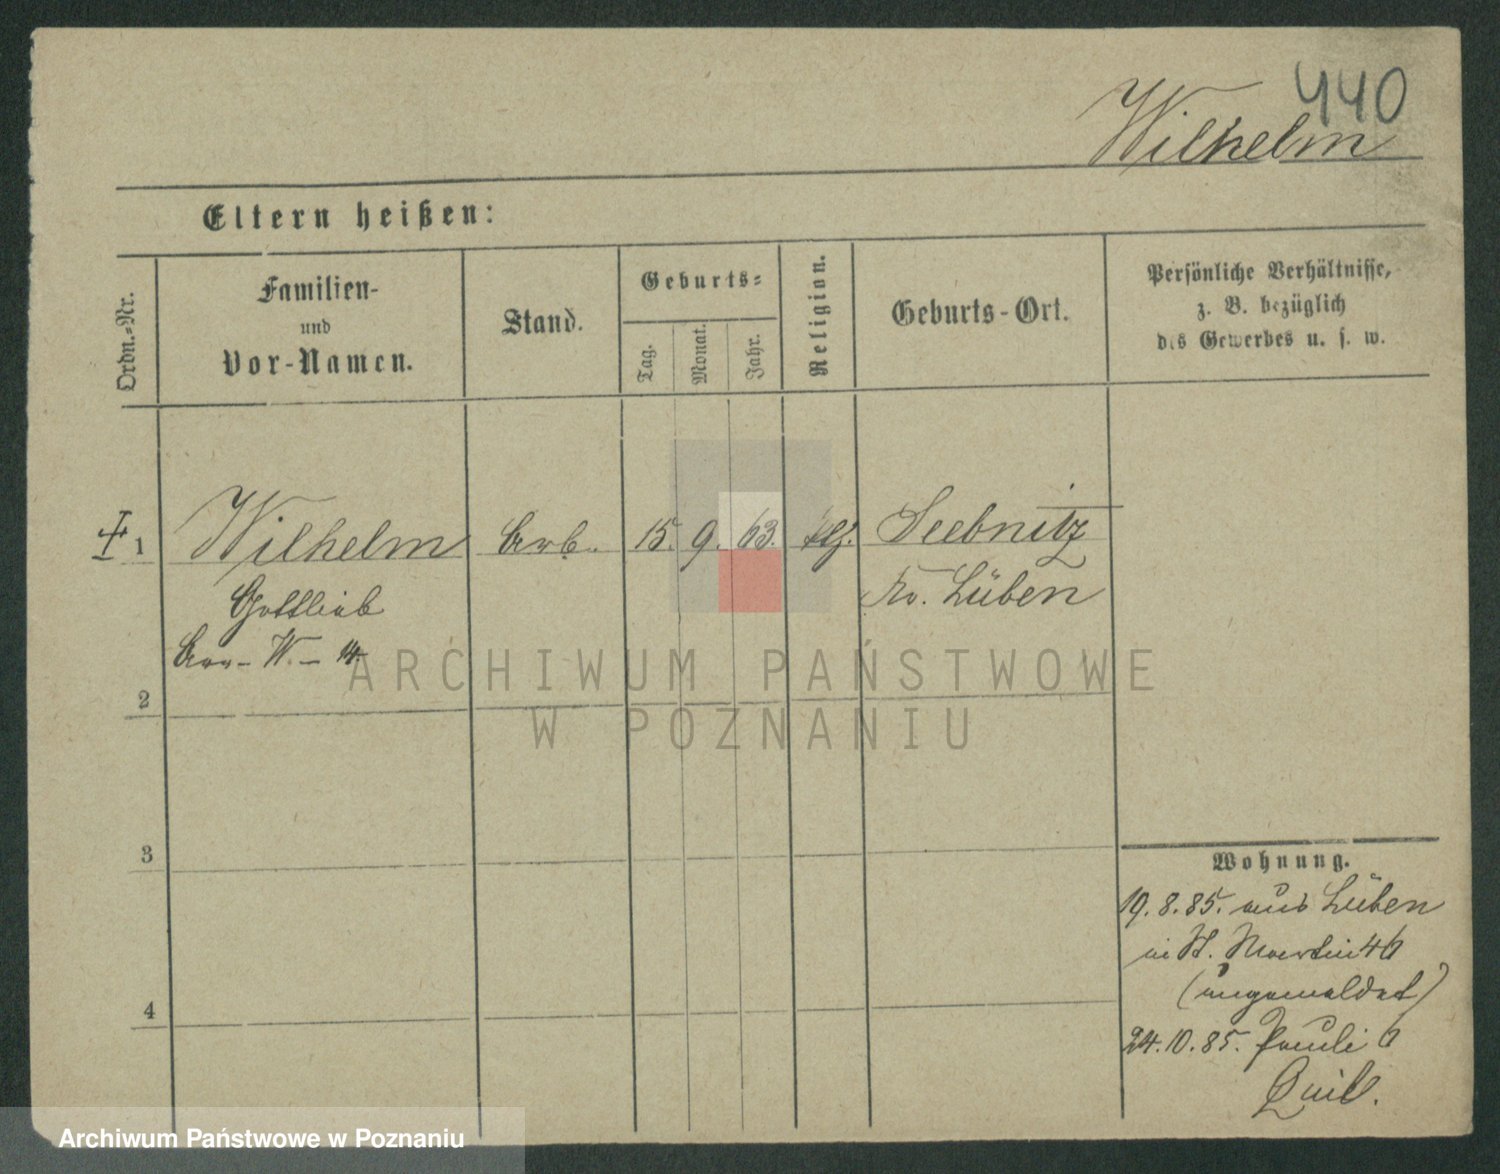 440
Wilhelm
Eltern heißen:
Ordn.-Nr.
Familien-
und
Vor-Namen.
Stand.
Geburts-
Tag.
Monat.
Jahr.
Religion.
Geburts-Ort.
Persönliche Verhältnisse,
z. B. bezüglich
des Gewerbes u. s. w.
1 Wilhelm Arb. 15. 9. 63. Seebnitz
Gottlieb Kr. Lüben
W - 14.
2
3
4
Wohnung.
19.8.85. aus Lüben
in St. Martin 46
(angemeldet)
24.10.85. Pauli 6
ARCHIWUM PAŃSTWOWE
W POZNANIU
Archiwum Państwowe w Poznaniu